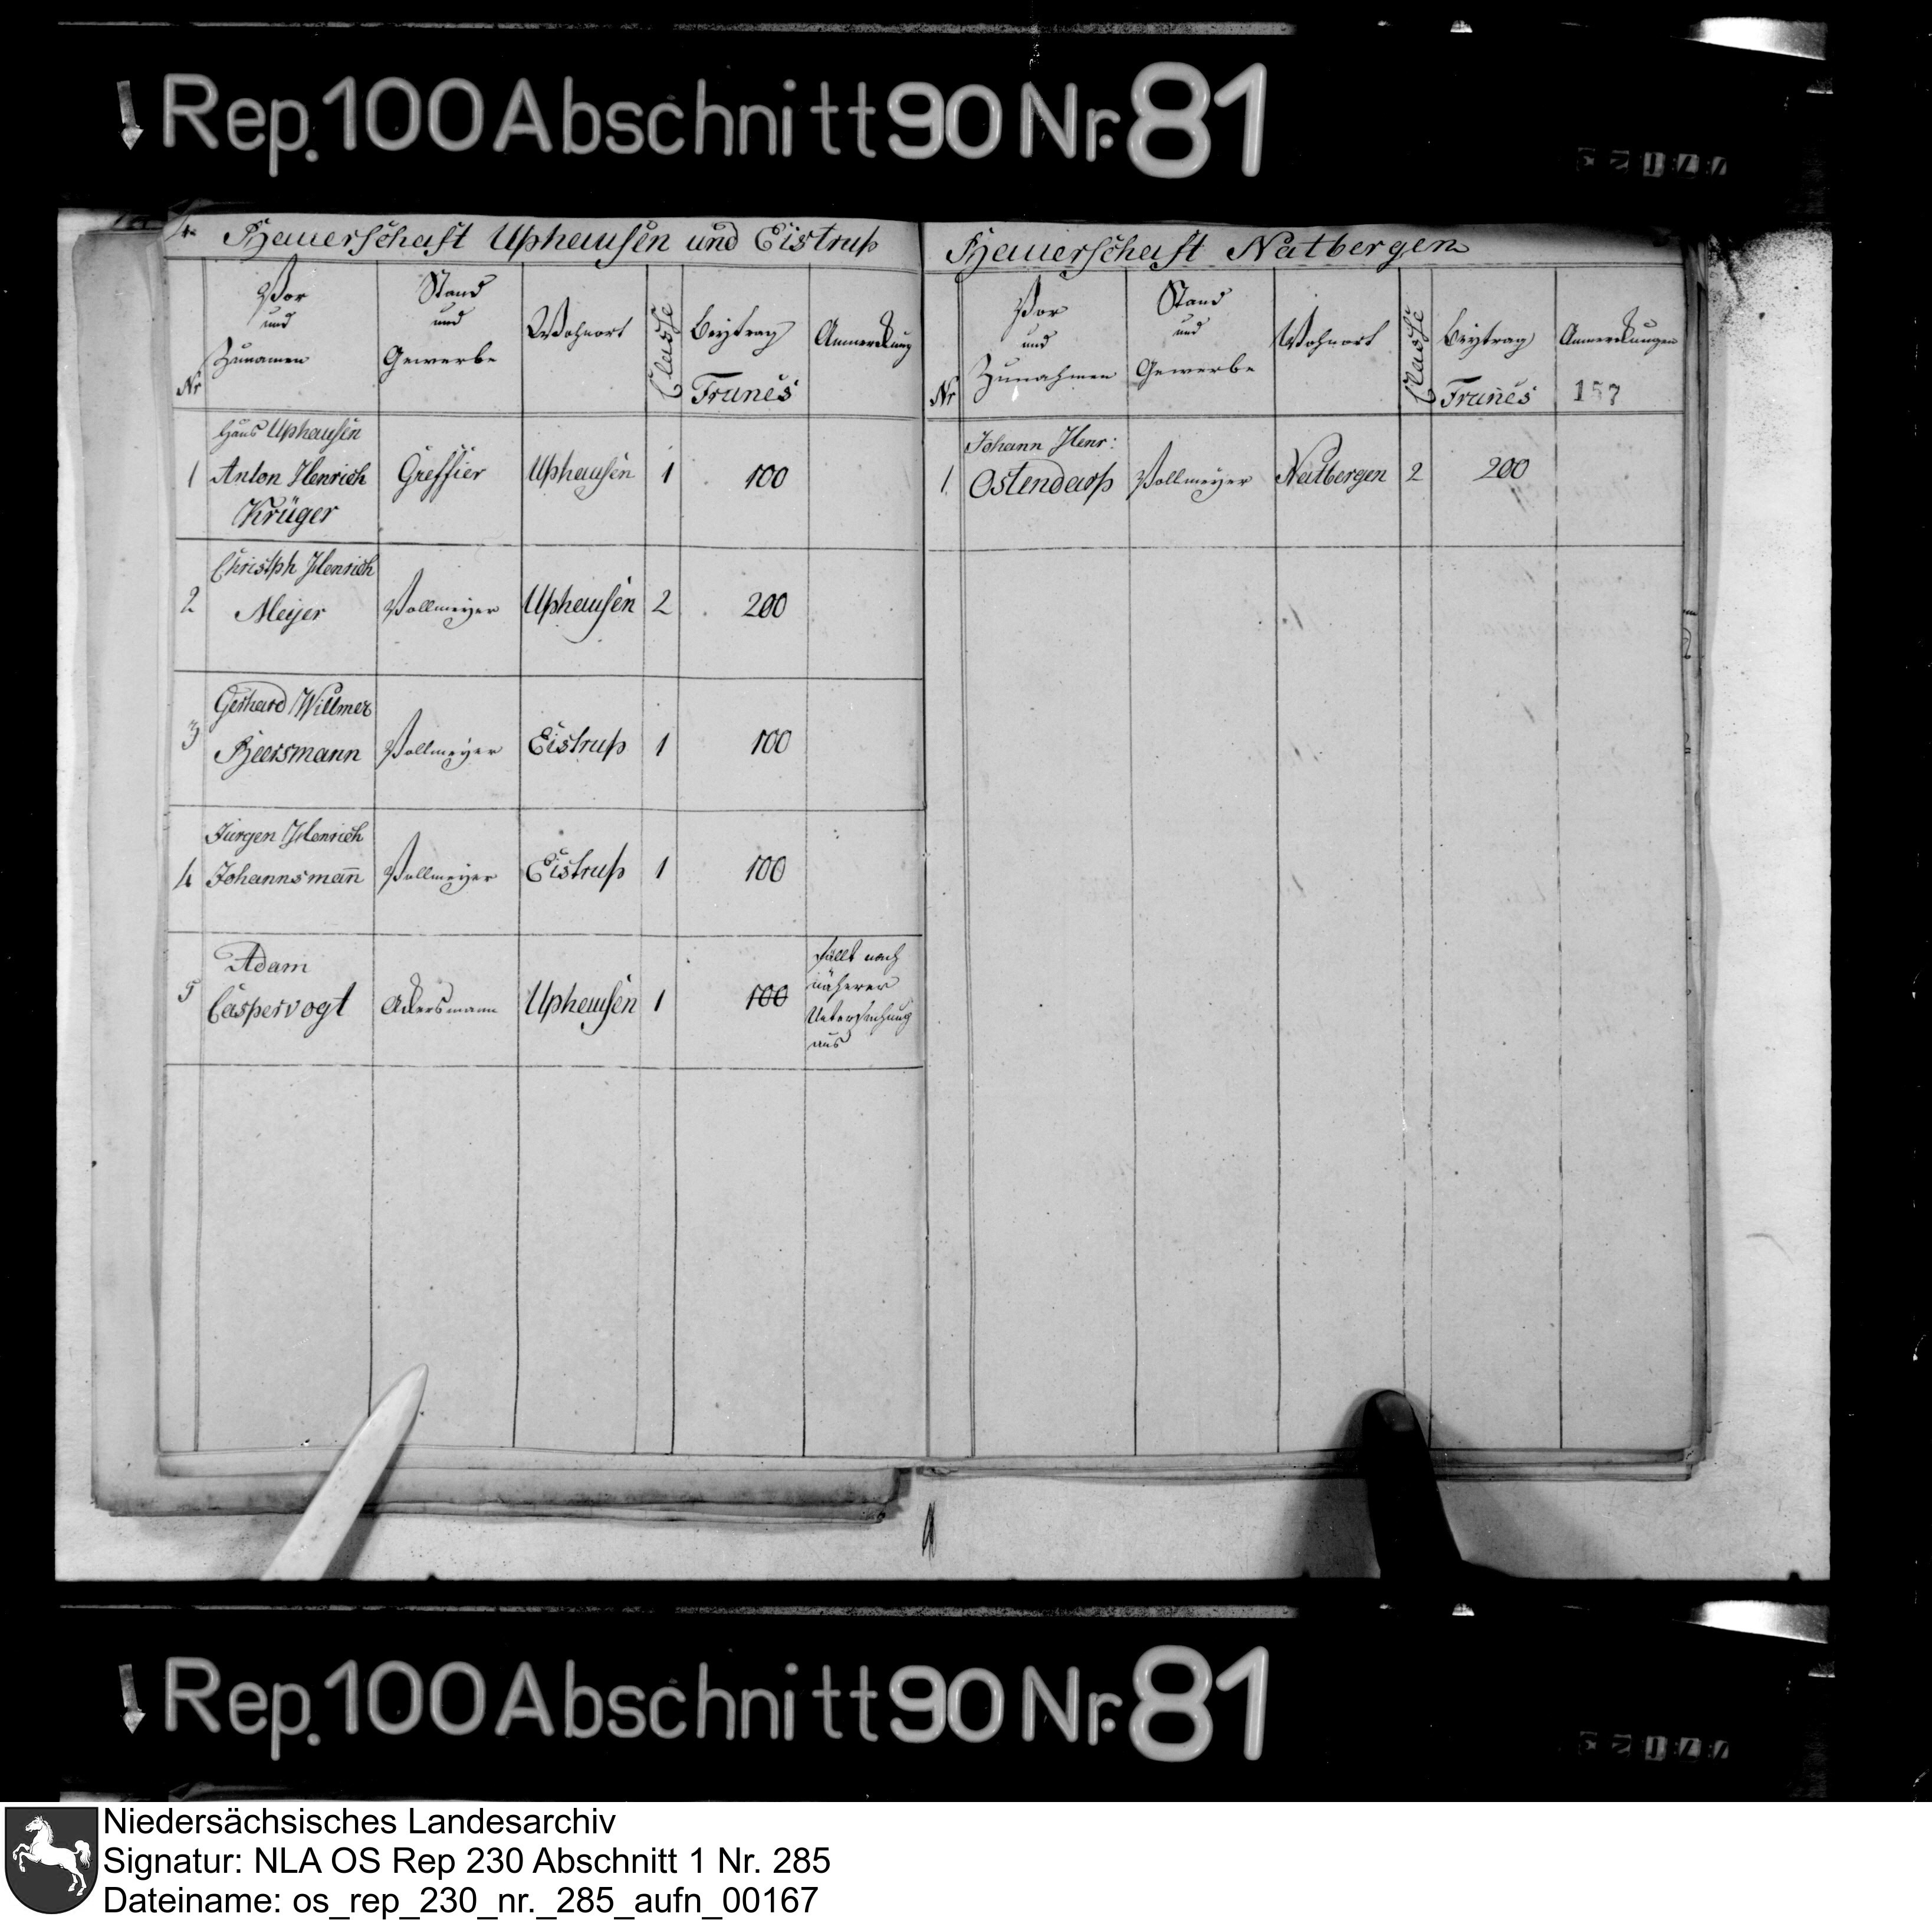 Rep. 100 Abschnitt 90 Nr. 81
4. Bauerschaft Uphausen und Eistrup
Nr Vor und Zunamen Stand und Gewerbe Wohnort Classe Beytrag Francs Anmerckung
1 Haus Uphausen Anton Henrich Krüger Greffier Uphausen 1 100
2 Christph Henrich Meyer Vollmeyer Uphausen 2 200
3 Gerhard Willmer Beersmann Vollmeyer Eistrup 1 100
4 Jürgen Henrich Johannsmañ Vollmeyer Eistrup 1 100
5 Adam Caspervogt Ackersmann Uphausen 1 100 fällt nach näherer Untersuchung aus
Bauerschaft Natbergen
Nr Vor und Zunahmen Stand und Gewerbe Wohnort Classe Beytrag Francs Anmerckungen
157
1. Johann Henr: Ostendarp Vollmeyer Natbergen 2 200
Rep. 100 Abschnitt 90 Nr. 81
Niedersächsisches Landesarchiv
Signatur: NLA OS Rep 230 Abschnitt 1 Nr. 285
Dateiname: os_rep_230_nr._285_aufn_00167